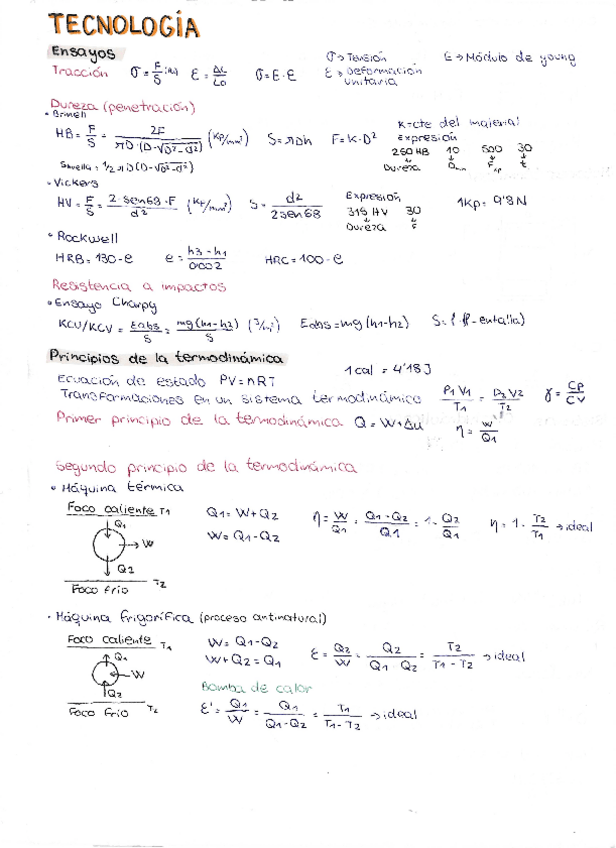 TECNOLOGÍA
Ensayos
σ→Tensión E→Módulo de young
Tracción σ = F/S ε = ΔL/L0 σ = E·ε ε→Deformación unitaria
Dureza (penetración)
• Brinell
K=cte del material
HB = F/S = 2F/(πD·(D-√(D²-d²))) (Kp/mm²) S=πDh F=K·D²
Expresión
250HB 10 500 30
Dureza Dmm Fkp t
= 1/2 πD(D-√(D²-d²))
• Vickers
HV = F/S = 2·sen68·F/d² (Kp/mm²) S = d²/2sen68
Expresión
315 HV 30
Dureza F
1Kp = 9'8N
• Rockwell
HRB = 130-e e = (h3-h1)/0'002 HRC = 100-e
Resistencia a impactos
• Ensayo Charpy
KCU/KCV = Eabs/S = mg(h1-h2)/S (J/m²) Eabs=mg(h1-h2)
Principios de la termodinámica
1cal = 4'18J
Ecuación de estado PV=nRT
Transformaciones en un sistema termodinámico P1V1/T1 = P2V2/T2 γ = CP/CV
Primer principio de la termodinámica Q = W+Δu η = W/Q1
Segundo principio de la termodinámica
• Máquina térmica
Foco caliente T1
Q1
W
Q2
T2
Foco frío
Q1=W+Q2
W=Q1-Q2
η = W/Q1 = (Q1-Q2)/Q1 = 1-Q2/Q1 η = 1-T2/T1 → ideal
• Máquina frigorífica (proceso antinatural)
Foco caliente T1
Q1
W
Q2
Foco frío T2
W=Q1-Q2
W+Q2=Q1
ε = Q2/W = Q2/(Q1-Q2) = T2/(T1-T2) → ideal
Bomba de calor
ε' = Q1/W = Q1/(Q1-Q2) = T1/(T1-T2) → ideal